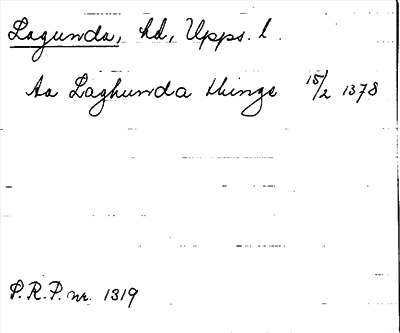 Lagunda, hd, Upps. l.
Aa Laghunda thinge 15/2 1378
P.R.P. nr. 1319